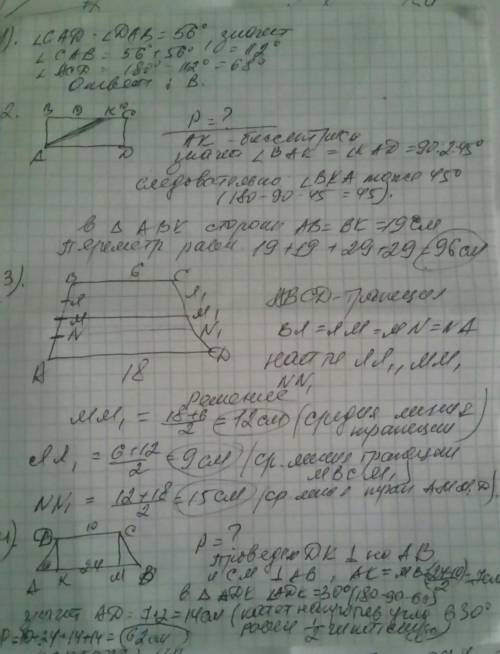 1). ∠CAD = ∠DAB = 56° значит
∠CAB = 56° + 56° = 112°
∠ACD = 180° - 112° = 68°
Ответ: В.
2.
B 19 K 10 C
A D
P = ?
AK - биссектриса
значит ∠BAK = ∠KAD = 90:2=45°
следовательно ∠BKA тоже 45°
(180-90-45=45).
в △ABK стороны AB=BK=19см
Периметр равен 19+19+29+29=96см
3).
B 6 C
Л Л₁
M M₁
N N₁
A D
18
ABCD-трапеция
BЛ=ЛM=MN=NA
найти ЛЛ₁, MM₁
NN₁
Решение
MM₁ = (18+6)/2 = 12см (средняя линия трапеции)
ЛЛ₁ = (6+12)/2 = 9см (ср. линия трапеции MBCM₁)
NN₁ = (12+18)/2 = 15см (ср. линия трап AMM₁D)
4)
D 10 C
A K 24 M B
P = ?
Проведем DK ⊥ на AB
и CM ⊥ AB, AK=MB= =7см
в △ADK ∠ADK=30° (180-90-60)
значит AD=7·2=14см (катет напротив угла в 30°
равен ½ гипотенузы)
P=10+24+14+14=62см